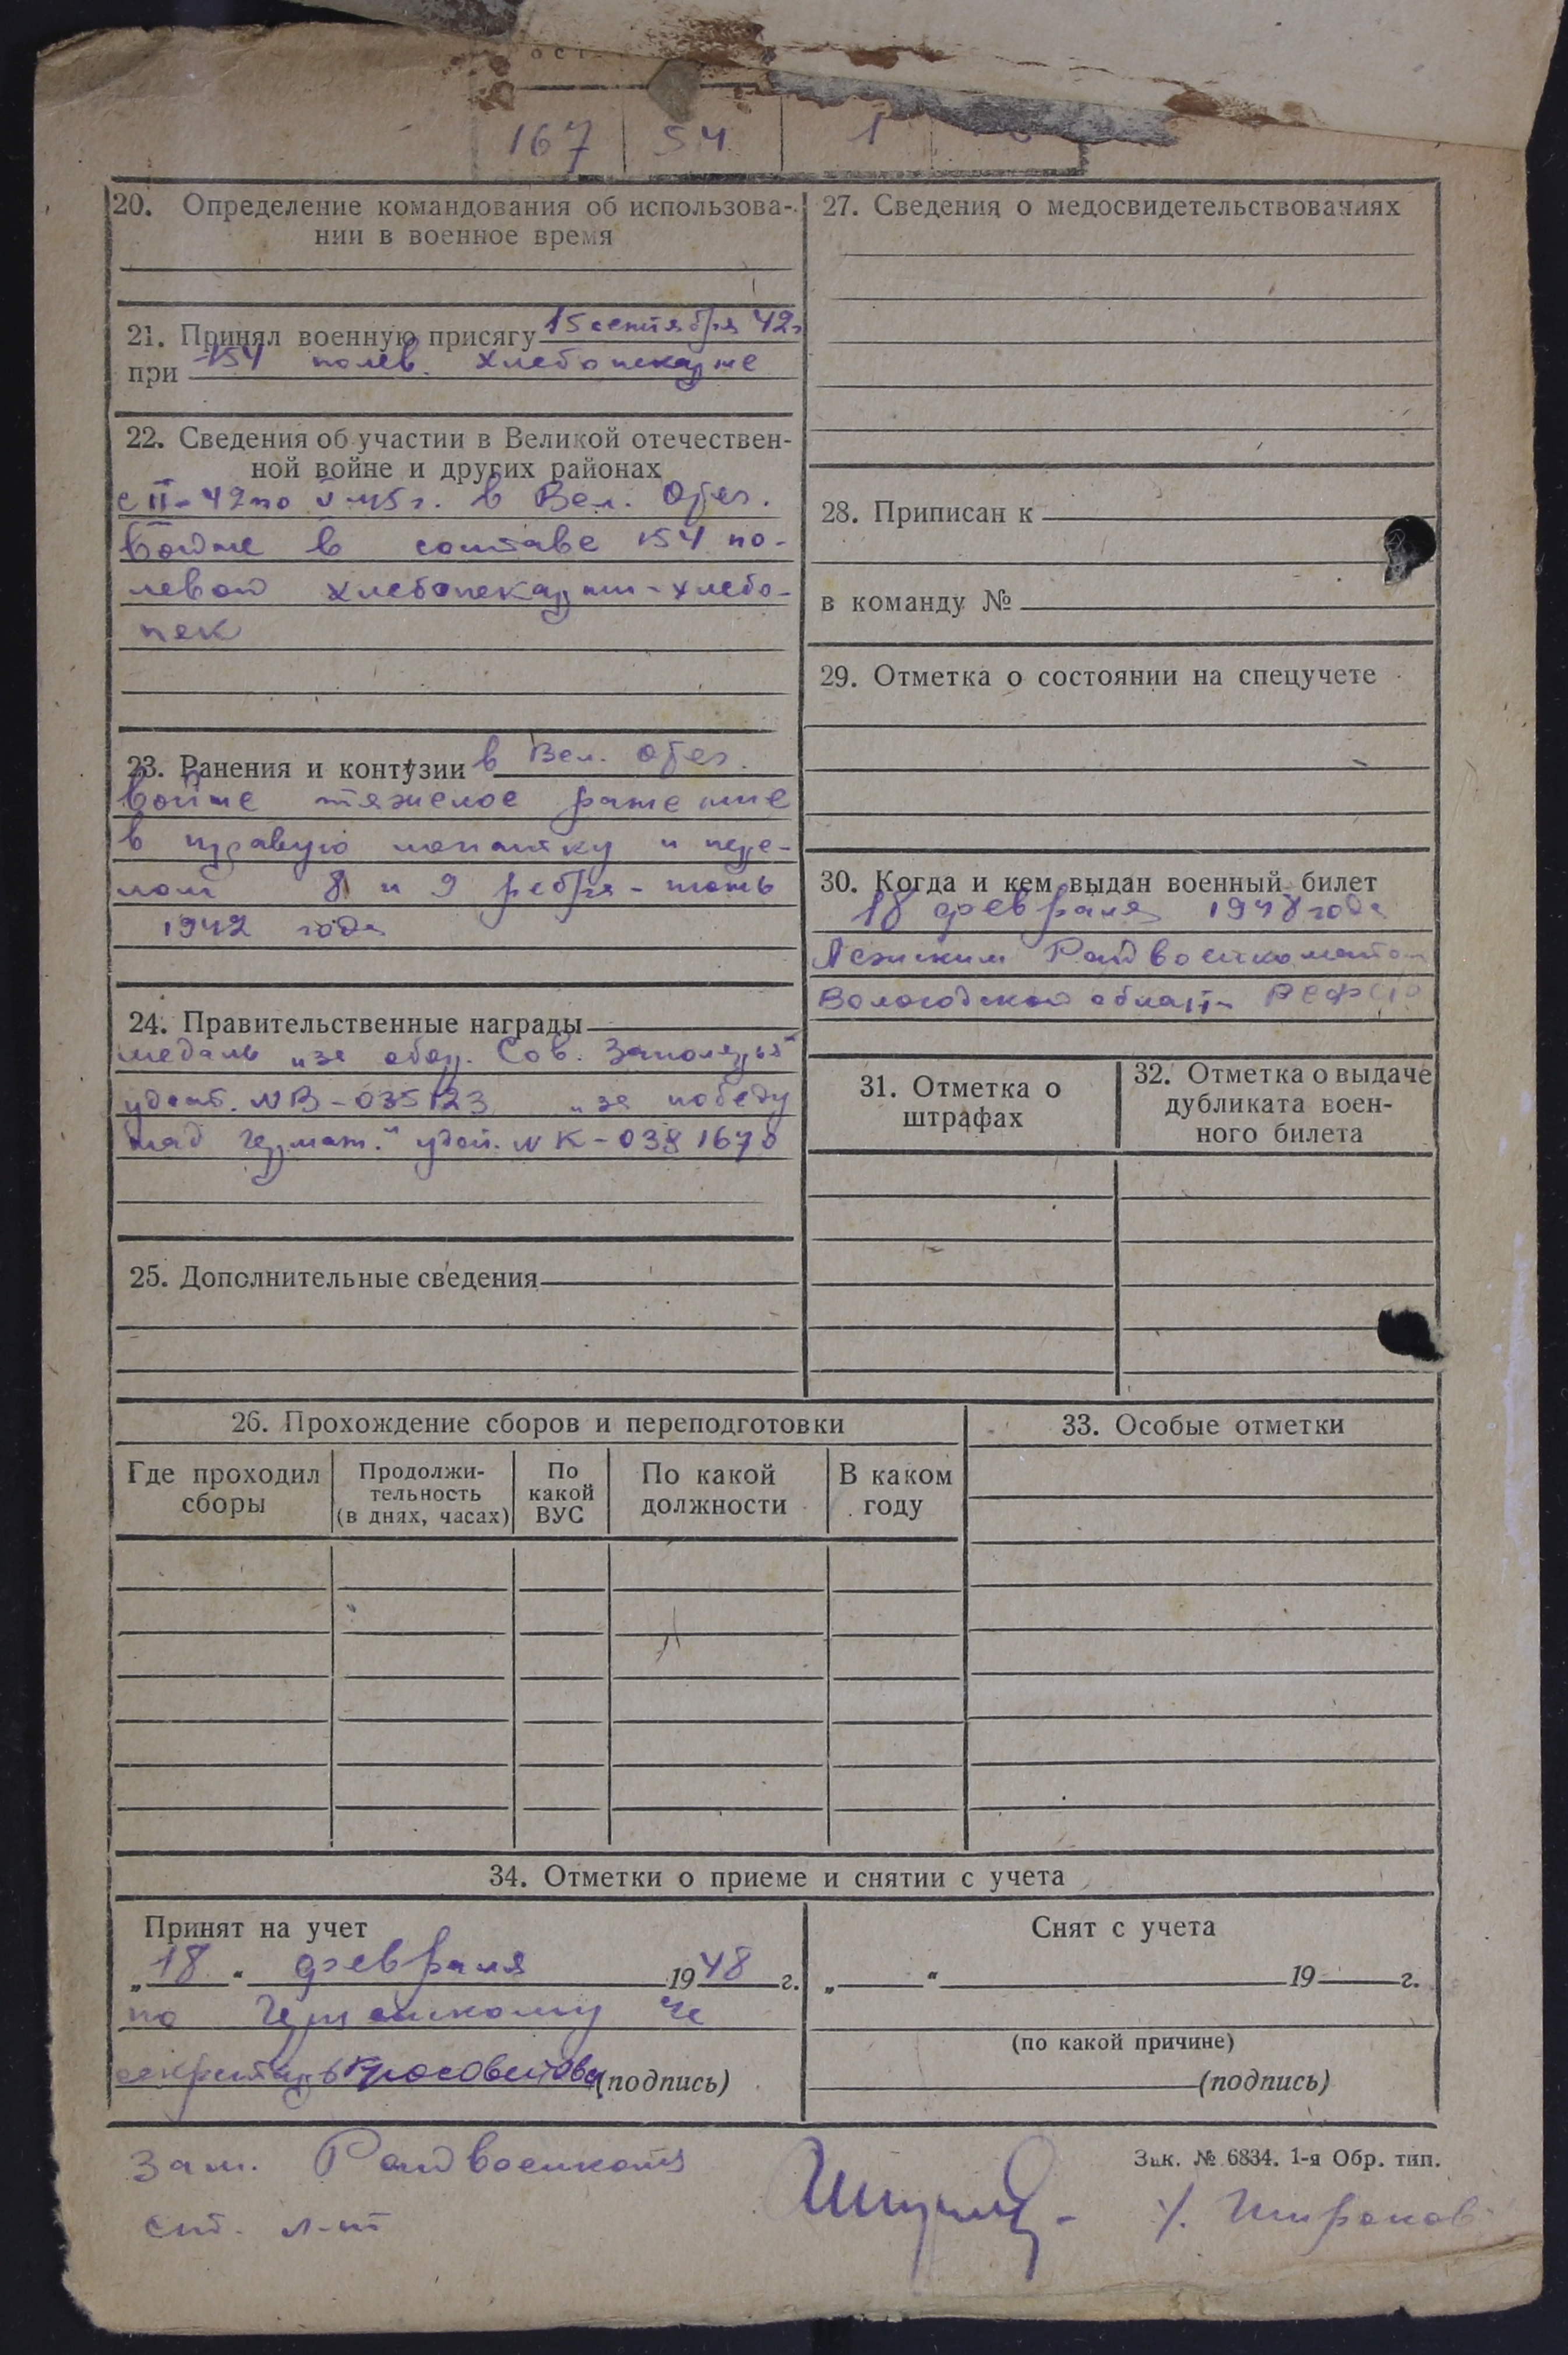 167 54 1
20. Определение командования об использова-
нии в военное время
21. Принял военную присягу 15 сентября 42г
при 154 полев. хлебопекарне
22. Сведения об участии в Великой отечествен-
ной войне и других районах
с II-42 по V-45г. в Вел. Отеч.
войне в составе 154 по-
левой хлебопекарни-хлебо-
пек
23. Ранения и контузии в Вел. Отеч.
войне тяжелое ранение
в правую лопатку и пере-
лом 8 и 9 ребра -
1942 года
24. Правительственные награды
медаль „за обор. Сов. Заполярья"
удост. № В-035123 „за победу
над герман." удос. № К-0381670
25. Дополнительные сведения
26. Прохождение сборов и переподготовки
Где проходил
сборы
Продолжи-
тельность
(в днях, часах)
По
какой
ВУС
По какой
должности
В каком
году
27. Сведения о медосвидетельствованиях
28. Приписан к
в команду №
29. Отметка о состоянии на спецучете
30. Когда и кем выдан военный билет
18 февраля 1948 года
Райвоенкоматом
Вологодской области РСФСР
31. Отметка о
штрафах
32. Отметка о выдаче
дубликата воен-
ного билета
33. Особые отметки
34. Отметки о приеме и снятии с учета
Принят на учет
„18" февраля 1948 г.
по
секретарь (подпись)
Снят с учета
„ " 19 г.
(по какой причине)
(подпись)
Зам. Райвоенкома
ст. л-нт
Широков
Зак. № 6834. 1-я Обр. тип.